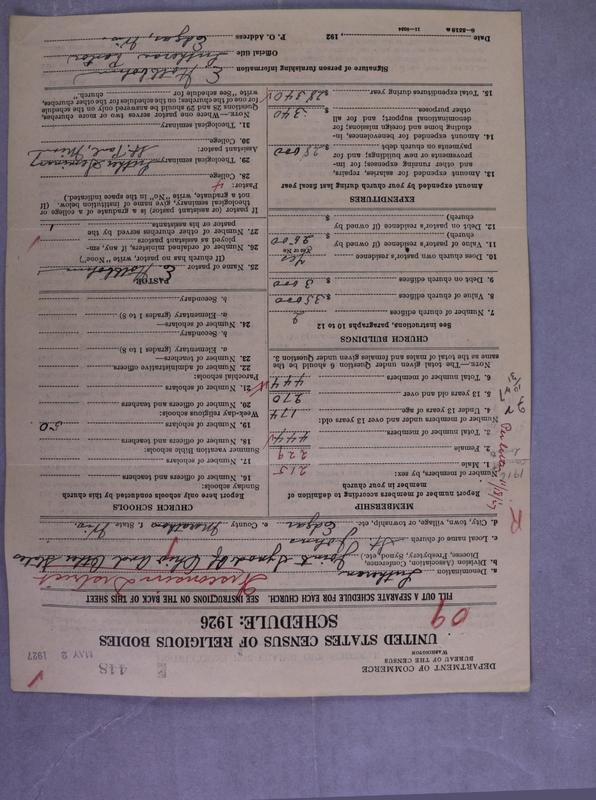 DEPARTMENT OF COMMERCE
BUREAU OF THE CENSUS
WASHINGTON
418
MAY 2 1927
UNITED STATES CENSUS OF RELIGIOUS BODIES
SCHEDULE: 1926
09
FILL OUT A SEPARATE SCHEDULE FOR EACH CHURCH. SEE INSTRUCTIONS ON THE BACK OF THIS SHEET
a. Denomination Lutheran
Wisconsin District
b. Division (Association, Conference, Diocese, Presbytery, Synod, etc.) Joint Synod Of Ohio And Other States
c. Local name of church St. Johns
d. City, town, village, or township, etc. Edgar e. County Marathon f. State Wis.
MEMBERSHIP
Report number of members according to definition of member in your church
Number of members, by sex:
1. Male 215
2. Female 229
3. Total number of members 444
Number of members under and over 13 years old:
4. Under 13 years of age 174
5. 13 years old and over 270
6. Total number of members 444
NOTE.—The total given under Question 6 should be the same as the total of males and females given under Question 3.
CHURCH BUILDINGS
See instructions, paragraphs 10 to 12
7. Number of church edifices 2
8. Value of church edifices $ 35000
9. Debt on church edifices $ 3000
10. Does church own pastor's residence Yes
Yes or No
11. Value of pastor's residence (if owned by church) $ 2500
12. Debt on pastor's residence (if owned by church) $
EXPENDITURES
Amount expended by your church during last fiscal year
13. Amount expended for salaries, repairs, and other running expenses; for improvements or new buildings; and for payments on church debt $ 28000
14. Amount expended for benevolences, including home and foreign missions; for denominational support; and for all other purposes $ 340
15. Total expenditures during year $ 28340
CHURCH SCHOOLS
Report here only schools conducted by this church
Sunday schools:
16. Number of officers and teachers
17. Number of scholars
Summer vacation Bible schools:
18. Number of officers and teachers
19. Number of scholars 50
Week-day religious schools:
20. Number of officers and teachers
21. Number of scholars
Parochial schools:
22. Number of administrative officers
23. Number of teachers—
a. Elementary (grades 1 to 8)
b. Secondary
24. Number of scholars—
a. Elementary (grades 1 to 8)
b. Secondary
PASTOR
25. Name of pastor
(If church has no pastor, write "None")
26. Number of ordained ministers, if any, employed as assistant pastors
27. Number of other churches served by the pastor or his assistants 1
If pastor (or assistant pastor) is a graduate of a college or theological seminary, give name of institution below. (If not a graduate, write "No" in the space indicated.)
Pastor: 4
28. College
29. Theological seminary Luther Seminary
St. Paul, Minn
Assistant pastor:
30. College
31. Theological seminary
NOTE.—Where one pastor serves two or more churches, Questions 28 and 29 should be answered only on the schedule for one of the churches; on the schedules for the other churches, write "See schedule for church."
Signature of person furnishing information
Official title Lutheran Pastor
P. O. Address Edgar, Wis.
Date , 192
11—9034